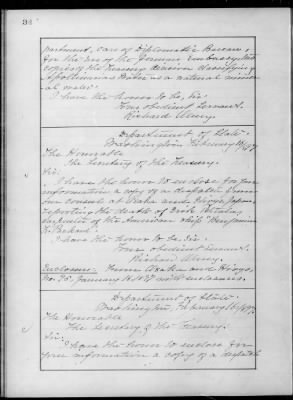 partment, Care of Diplomatic Bureau,
for the use of the German Embassy, two
copies of the Treasury decision classifying
Apollinaris Water as a natural mineral
water.
I have the honor to be, Sir,
Your obedient servant,
Richard Olney.
Department of State.
Washington, February
The Honorable
The Secretary of the Treasury.
Sir:
I have the honor to enclose for your
information a copy of a despatch from
our Consul at Osaka and Hiogo, Japan,
reporting the death of
of the American ship "Benjamin
Packard".
I have the honor to be, Sir,
Your obedient servant,
Richard Olney.
Enclosure: From Osaka and Hiogo,
No. 75, January with enclosures.
Department of State.
Washington, February
The Honorable
The Secretary of the Treasury.
Sir:
I have the honor to enclose for
your information a copy of a despatch